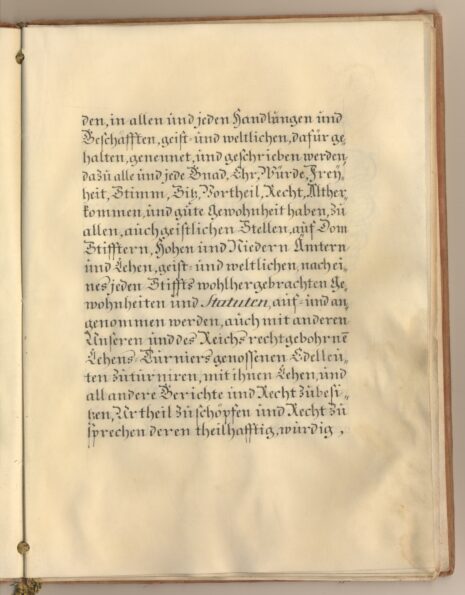 den, in allen und jeden Handlungen und
Geschäfften, geist- und weltlichen, dafür ge,
halten, genennet, und geschrieben werden,
dazu alle und jede Gnad, Ehr, Würde, Frey,
heit, Stimm, Sitz, Vortheil, Recht, Alther,
kommen, und gute Gewohnheit haben, zu
allen, auch geistlichen Stellen, auf Dom
Stifftern, Hohen und Niedern Ämtern
und Lehen, geist- und weltlichen, nach ei,
nes jeden Stiffts wohlhergebrachten Ge,
wohnheiten und Statuten, auf- und an,
genommen werden, auch mit anderen
Unseren und des Reichs rechtgebohrnē
Lehens-Turniersgenossenen Edelleu„
ten zu turniren, mit ihnen Lehen, und
all andere Gerichte und Recht zu besi„
tzen, Urtheil zu schöpfen und Recht zu
sprechen deren theilhafftig, würdig ,